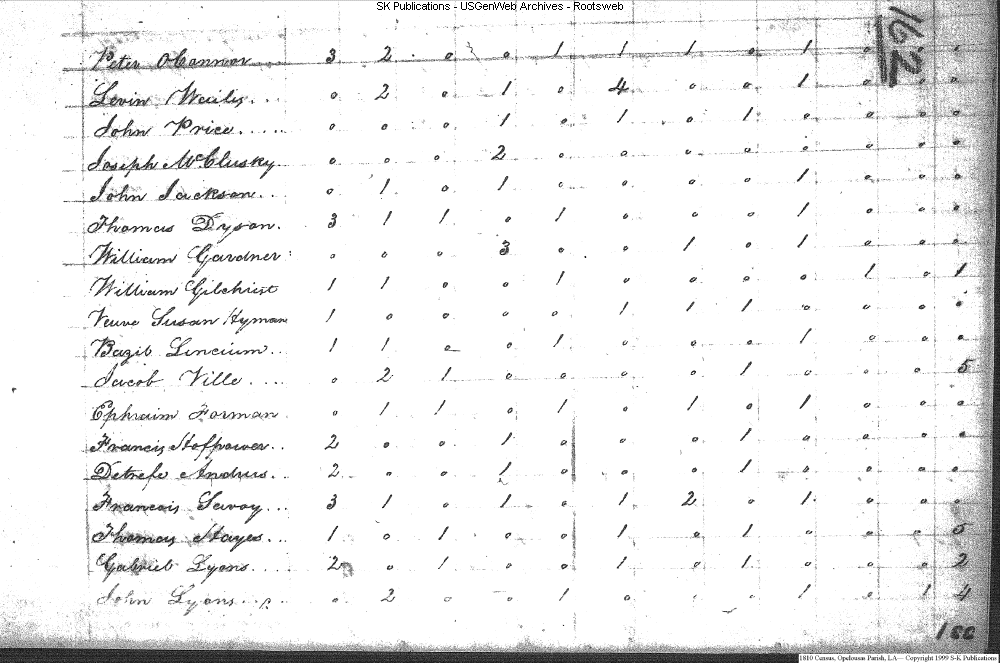 SK Publications - USGenWeb Archives - Rootsweb
162
Peter OConnor 3 2 0 0 1 1 1 0 1 0 0 0
Levin 0 2 0 1 0 4 0 0 1 0 0 0
John Price..... 0 0 0 1 0 1 0 1 0 0 0 0
Joseph McClusky 0 0 0 2 0 0 0 0 0 0 0 0
John Jackson... 0 1 0 1 0 0 0 0 1 0 0 0
Thomas Dyson. 3 1 1 0 1 0 0 0 1 0 0 0
William Gardner 0 0 0 3 0 0 1 0 1 0 0 0
William Gilchrist 1 1 0 0 1 0 0 0 0 1 0 1
Veuve Susan Hyman 1 0 0 0 0 1 1 1 0 0 0 0
Bazil 1 1 0 0 1 0 0 0 1 0 0 0
Jacob Ville.... 0 2 1 0 0 0 0 1 0 0 0 5
Ephraim Forman 0 1 1 0 1 0 1 0 1 0 0 0
Francis Hoffpower.. 2 0 0 1 0 0 0 1 0 0 0 0
Andrus.. 2 0 0 1 0 0 0 1 0 0 0 0
Francois Savoy.. 3 1 0 1 0 1 2 0 1 0 0 0
Thomas Hayes... 1 0 1 0 0 1 0 1 0 0 0 5
Gabriel Lyons... 2 0 1 0 0 1 0 1 0 0 0 2
John Lyons.... 0 2 0 0 1 0 0 0 1 0 1 4
1810 Census, Opelousas Parish, LA -- Copyright 1999 S-K Publications